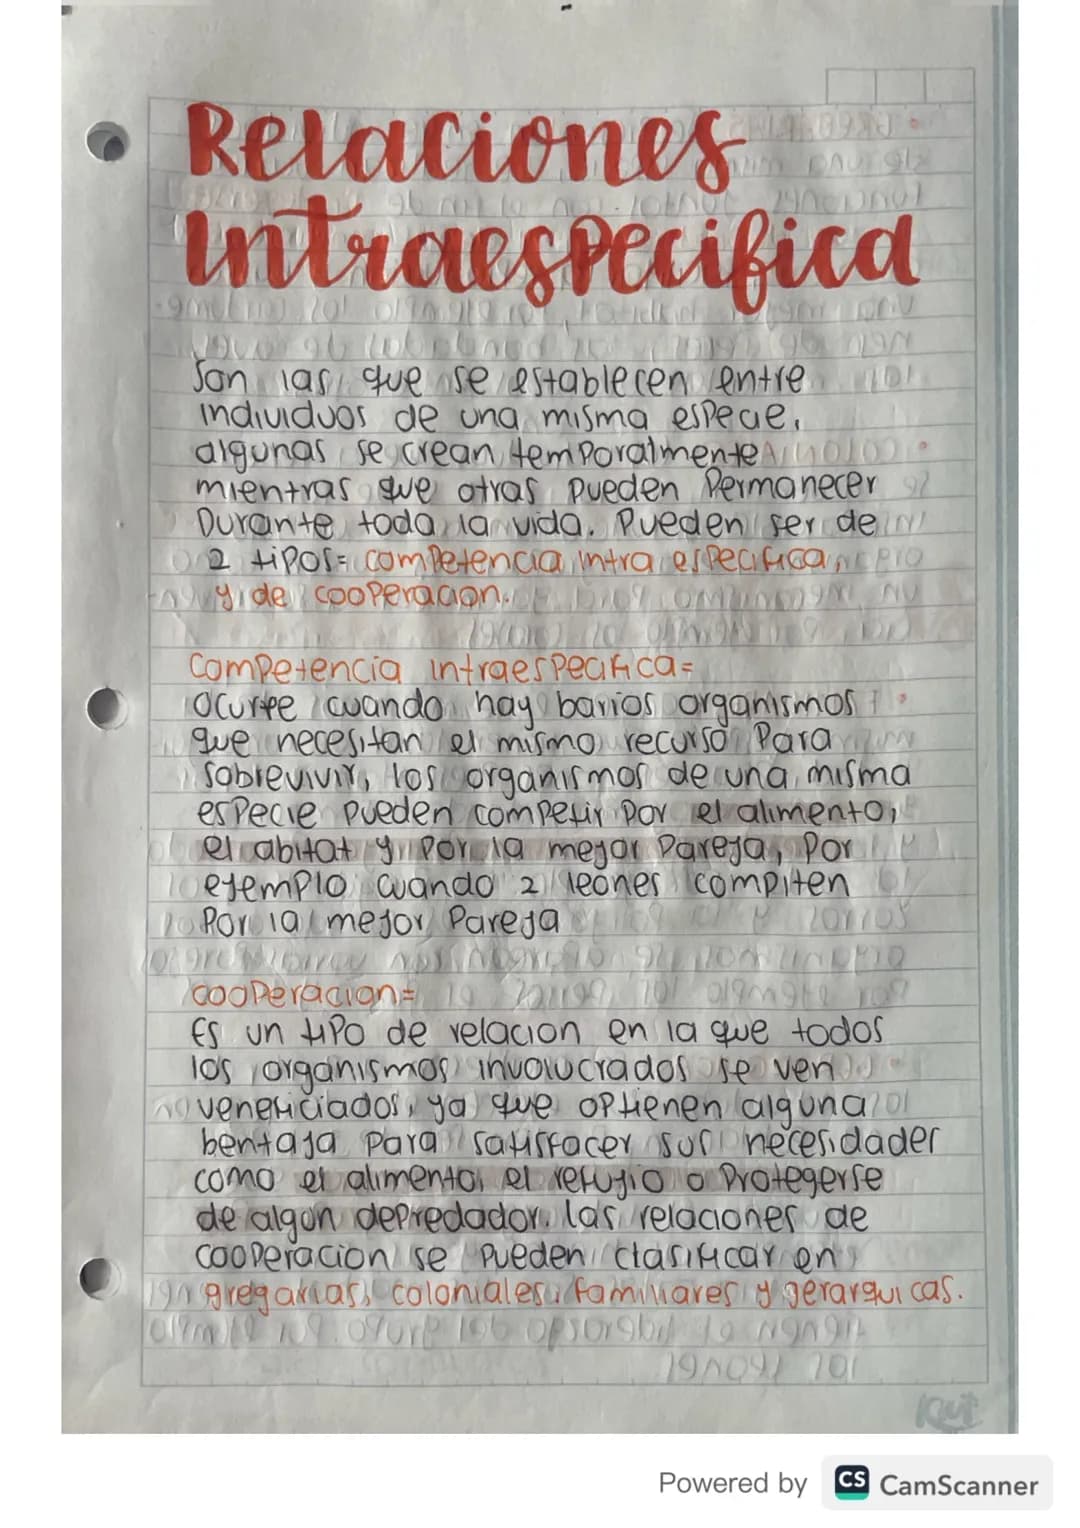 Relaciones
Intraespecifica
Son las que se establecen entre
individuos de una misma especie,
algunas se crean temporalmente
mientras que otras pueden Permanecer
Durante toda la vida. Pueden ser de
2 tipos= competencia intra especifica,
y de cooperacion.
Competencia intraespecifica=
Ocurre cuando hay barios organismos
que necesitan el mismo recurso Para
Sobrevivir, los organismos de una misma
especie pueden competir por el alimento,
el abitat y por la mejor Pareja, Por
ejemplo cuando 2 leones compiten
Por la mejor Pareja
cooperacion=
Es un tipo de relacion en la que todos
los organismos involucrados se ven
veneficiados, ya que optienen alguna
bentaja para satisfacer sus necesidades
como el alimento, el refugio o Protegerse
de algun depredador. las relaciones de
cooperacion se pueden clasificar en
gregarias, coloniales, familiares y gerarquicas.
Powered by CS CamScanner